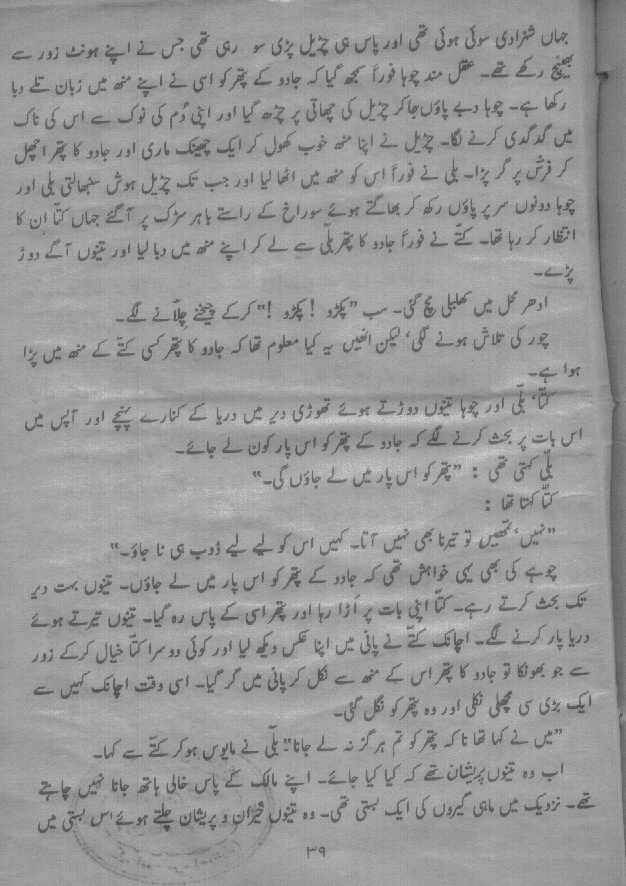 جہاں شہزادی سوئی ہوئی تھی اور پاس ہی چڑیل پڑی سو رہی تھی جس نے اپنے ہونٹ زور سے
بھینچ رکھے تھے۔ عقل مند چوہا فوراً سمجھ گیا کہ جادو کے پتھر کو اسی نے اپنے منھ میں زبان تلے دبا
رکھا ہے۔ چوہا دبے پاؤں جا کر چڑیل کی چھاتی پر چڑھ گیا اور اپنی دُم کی نوک سے اس کی ناک
میں گدگدی کرنے لگا۔ چڑیل نے اپنا منھ خوب کھول کر ایک چھینک ماری اور جادو کا پتھر اچھل
کر فرش پر گر پڑا۔ بلی نے فوراً اس کو منھ میں اٹھا لیا اور جب تک چڑیل ہوش سنبھالتی بلی اور
چوہا دونوں سر پر پاؤں رکھ کر بھاگتے ہوئے سوراخ کے راستے باہر سڑک پر آگئے جہاں کتّا اِن کا
انتظار کر رہا تھا۔ کتّے نے فوراً جادو کا پتھر بلّی سے لے کر اپنے منھ میں دبا لیا اور تینوں آگے دوڑ
پڑے۔
ادھر محل میں کھلبلی مچ گئی۔ سب ”پکڑو ! پکڑو !“ کرکے چیخنے چلاّنے لگے۔
چور کی تلاش ہونے لگی، لیکن انھیں یہ کیا معلوم تھا کہ جادو کا پتھر کسی کتے کے منھ میں پڑا
ہوا ہے۔
کتّا، بلّی اور چوہا تینوں دوڑتے ہوئے تھوڑی دیر میں دریا کے کنارے پہنچے اور آپس میں
اس بات پر بحث کرنے لگے کہ جادو کے پتھر کو اس پار کون لے جائے۔
بلّی کہتی تھی : ”پتھر کو اس پار میں لے جاؤں گی۔“
کتا کہتا تھا :
”نہیں، تمھیں تو تیرنا بھی نہیں آتا۔ کہیں اس کو لیے لیے ڈوب ہی نا جاؤ۔“
چوہے کی بھی یہی خواہش تھی کہ جادو کے پتھر کو اس پار میں لے جاؤں۔ تینوں بہت دیر
تک بحث کرتے رہے۔ کتّا اپنی بات پر اَڑا رہا اور پتھر اسی کے پاس رہ گیا۔ تینوں تیرتے ہوئے
دریا پار کرنے لگے۔ اچانک کتّے نے پانی میں اپنا عکس دیکھ لیا اور کوئی دوسرا کتّا خیال کرکے زور
سے جو بھونکا تو جادو کا پتھر اس کے منھ سے نکل کر پانی میں گر گیا۔ اسی وقت اچانک کہیں سے
ایک بڑی سی مچھلی نکلی اور وہ پتھر کو نگل گئی۔
”میں نے کہا تھا نا کہ پتھر کو تم ہرگز نہ لے جانا“۔ بلّی نے مایوس ہو کر کتّے سے کہا۔
اب وہ تینوں پریشان تھے کہ کیا کیا جائے۔ اپنے مالک کے پاس خالی ہاتھ جانا نہیں چاہتے
تھے۔ نزدیک میں ماہی گیروں کی ایک بستی تھی۔ وہ تینوں حیران و پریشان چلتے ہوئے اس بستی میں
۳۹